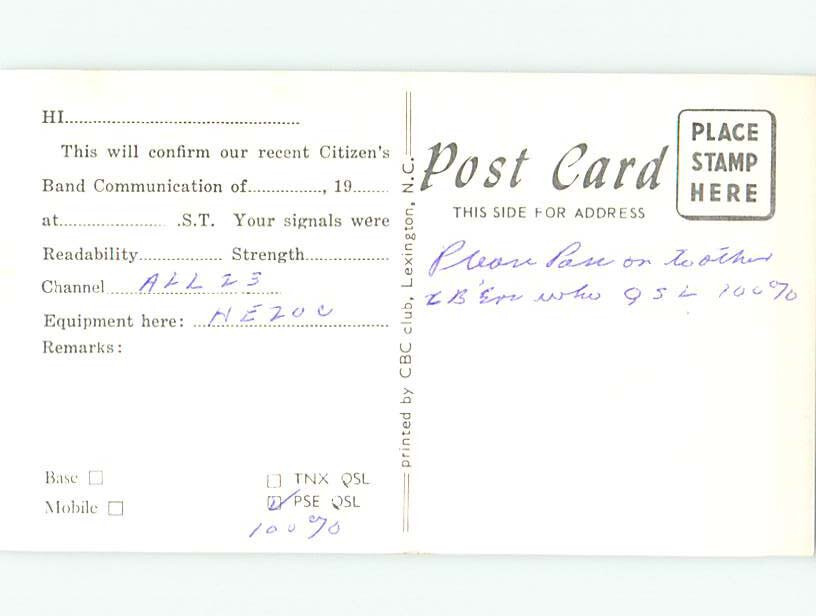 HI
This will confirm our recent Citizen's
Band Communication of............, 19.......
at..................... .S.T. Your signals were
Readability................ Strength................
Channel ALL 23
Equipment here: HE20C
Remarks:
Base
Mobile
TNX QSL
PSE QSL
100%
printed by CBC club, Lexington, N.C.
Post Card
THIS SIDE FOR ADDRESS
PLACE
STAMP
HERE
Please Pass on to other
CB'ers who QSL 100%